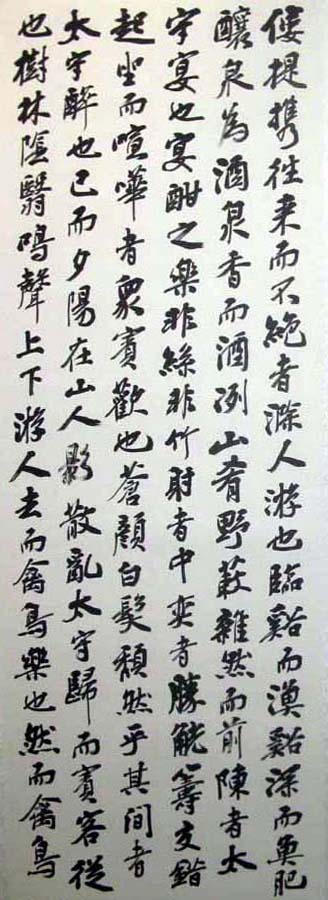 僂提携往来而不絕者滁人游也臨谿而漁谿深而魚肥
釀泉為酒泉香而酒洌山肴野蔌雜然而前陳者太
守宴也宴酣之樂非絲非竹射者中奕者勝觥籌交錯
起坐而喧嘩者衆賓歡也蒼顏白髮頹然乎其間者
太守醉也已而夕陽在山人影散亂太守歸而賓客從
也樹林陰翳鳴聲上下游人去而禽鳥樂也然而禽鳥